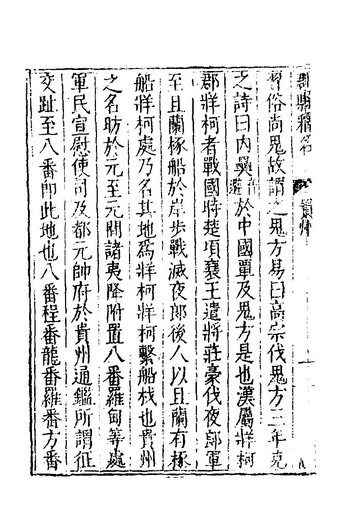 郡縣釋名　貴州
習俗尚鬼故謂之鬼方易曰高宗伐鬼方三年克
之詩曰內奰于中國覃及鬼方是也漢屬牂柯
郡牂柯者戰國時楚頃襄王遣將莊豪伐夜郎軍
至且蘭椓船於岸步戰滅夜郎後人以且蘭有椓
船牂柯處乃名其地為牂柯牂柯繫船杙也貴州
之名昉於元至元間諸夷降附置八番羅甸等處
軍民宣慰使司及都元帥府於貴州通鑑所謂征
交趾至八番即此地也八番程番龍番羅番方番